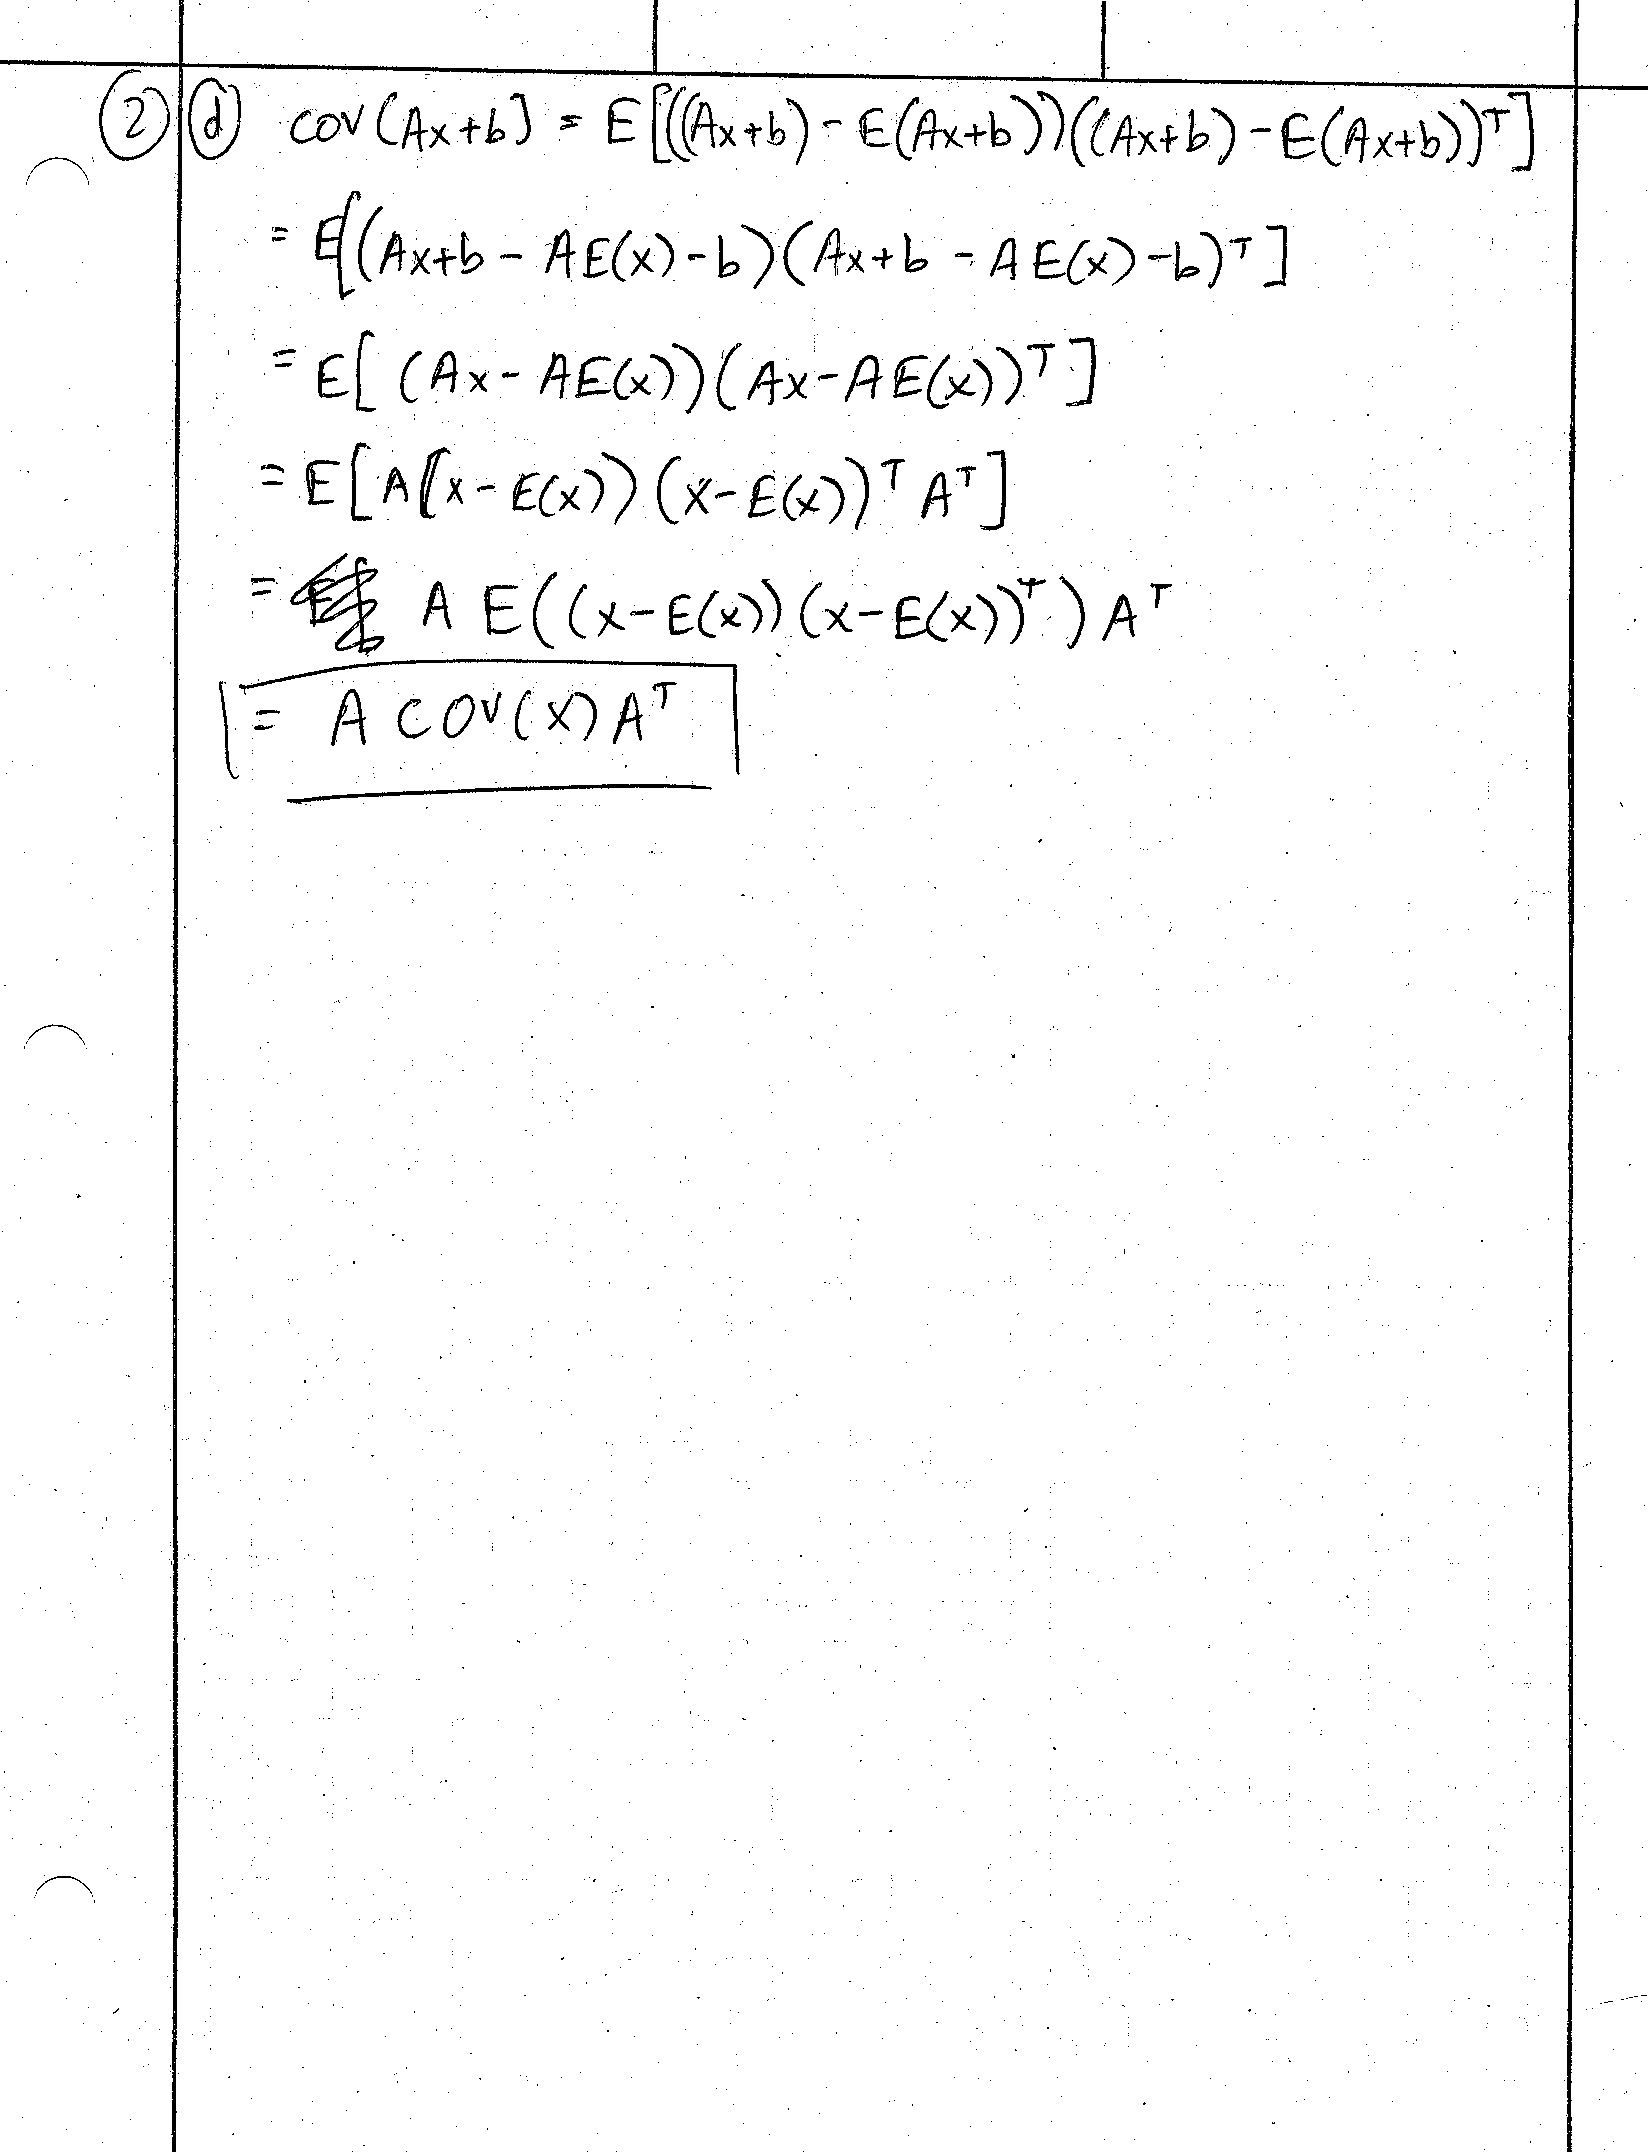 ② ⓓ cov(Ax+b] = E[((Ax+b) - E(Ax+b))((Ax+b) - E(Ax+b))ᵀ]
= E[(Ax+b - AE(x) - b)(Ax+b - AE(x) - b)ᵀ]
= E[ (Ax - AE(x))(Ax - AE(x))ᵀ]
= E[A(x - E(x))(x - E(x))ᵀ Aᵀ]
= A E((x - E(x))(x - E(x))ᵀ) Aᵀ
= A cov(x) Aᵀ